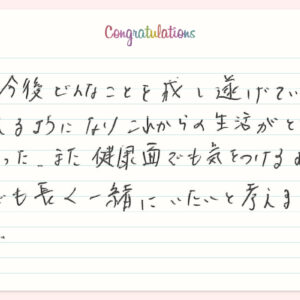 Congratulations
今後どんなことを成し遂げてい
えるようになりこれからの生活がと
った。また健康面でも気をつけるよ
でも長く一緒にいたいと考えま